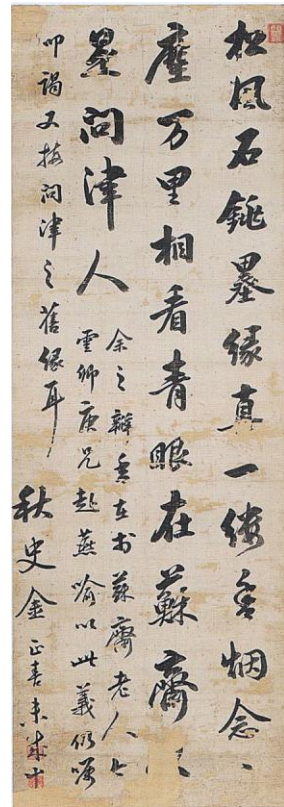 松風石銚墨緣真一縷香烟念〻
塵万里相看青眼在蘇齋
是問津人
余之瓣香在於蘇齋老人
雲卿庚兄赴燕喻以此義仍囑
叩謁又拈問津之舊緣耳
秋史金正喜